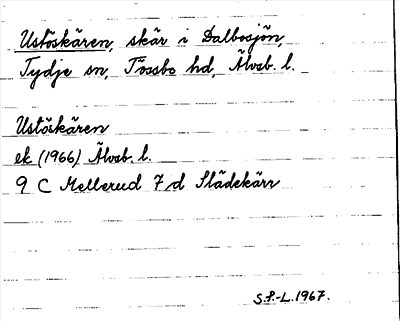 Ustöskären, skär i Dalbosjön,
Tydje sn, Tössbo hd, Älvsb. l.
Ustöskären
ek (1966) Älvsb. l.
9 C Mellerud 7 d Slädekärr
S.F.-L. 1967.